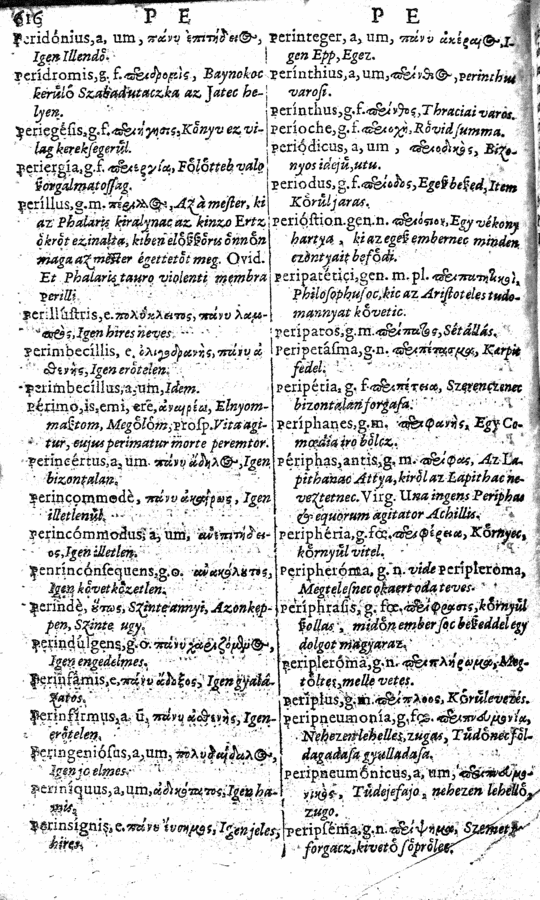 616 P E P E
Peridónius, a, um, πάνυ ἐπιτήδειος,
Igen Illendő.
perídromis, g. f. περιδρομὶς, Baynokoc
kerűlő Szabadutaczka az Jatec he-
lyen.
periegésis, g. f. περιήγησις, Kőnyv ez vi-
lag kereksegerűl.
periergía, g. f. περιεργία, Főlőtteb valo
ſzorgalmatoſſag.
períllus, g. m. πέριλλος, Az à meſter, ki
az Phalaris kiralynac az kinzo Ertz
őkrőt czinalta, kiben előſzőris őnnőn
maga az meſter égettetőt meg. Ovid.
Et Phalaris tauro violenti membra
perilli.
perillústris, e. πολύκλειτος, πάνυ λαμ-
πρὸς, Igen hires neves.
perimbecíllis, e, ὀλιγοδρανὴς, πάνυ ἀ
σθενὴς, Igen erőtelen.
perimbecíllus, a, um, Idem.
périmo, is, emi, ere, ἀναιρέω, Elnyom-
maſtom, Megőlőm, prosp. Vita agi-
tur, cujus perimatur morte peremtor.
perincértus, a, um. πάνυ ἄδηλος, Igen
bizontalan.
perincommodè, πάνυ ἀκαίρως, Igen
illetlenűl.
perincómmodus, a, um, ἀνεπιτήδει-
ος, Igen illetlen.
perincónsequens, g. o. ἀνακόλυτος,
Igen kővetkőzetlen.
perindè, ὕτως, Szinte annyi, Azonkep-
pen, Szinte ugy.
perindúlgens, g. o. πάνυ χαριζόμενος,
Igen engedelmes.
perinfámis, e, πάνυ ἄδοξος, Igen gyalá-
zatos.
perinfírmus, a. ū, πάνυ ἀσθενὴς, Igen-
erőtelen.
peringeniósus, a, um, πολυδαίδαλος,
Igen jo elmes.
períniquus, a, um, ἀδικώτατος, Igen ha-
mis.
perinsignis, e. πάνυ ἔνσημος, Igen jeles,
hires.
perinteger, a, um, πάνυ ἀκέραιος, I-
gen Epp, Egez.
perínthius, a, um, περίνθιος, perinthus
varosi.
perínthus, g. f. περίνθος, Thraciai varos.
períoche, g. f. περιοχὴ, Rővid summa.
periódicus, a, um, περιοδικὸς, Bizo-
nyos idejű, utu.
periodus, g. f. περίοδος, Egeſz beſzed, Item
Kőrűl jaras.
perióstion. gen. n. περιόστιον, Egy vékony
hartya, ki az egeſz embernec minden
czontyait beſődi.
peripatétici, gen. m. pl. περιπατητικοὶ,
Philosophusoc, kic az Ariſtoteles tudo-
mannyat kővetic.
peripatos, g. m. περίπατος, Sétállás.
peripetásma, g. n. περιπέτασμα, Karpit
fedel.
peripétia, g. f. περιπέτεια, Szerenczenec
bizontalan forgaſa.
períphanes, g. m. περιφανὴς, Egy Co-
mœdia iro bőlcz.
périphas, antis, g. m. περίφας, Az La-
pithanac Attya, kiről az Lapithac ne-
veztetnec. Virg. Una ingens Periphas
& equorum agitator Achillis.
periphéria, g. fœ. περιφέρεια, Kőrnyec,
kőrnyűl vitel.
peripheróma, g. n. vide Peripleroma,
Megtelesnec okaert oda teves.
períphrasis, g. fœ. περίφρασις, kőrnyűl
ſzollas, midőn ember soc beſzeddel egy
dolgot magyaraz.
periplerôma, g. n. περιπλήρωμα, Meg-
tőltes, melle vetes.
períplus, g. m. περίπλοος, Kőrűlevezés.
peripneumonía, g. fœ. περιπνευμονία,
Nehezen lehelles, zugas, Tűdőnec fől-
dagadaſa gyulladaſa.
peripneumónicus, a, um, περιπνευμο-
νικὸς, Tűdejefajo, nehezen lehellő,
zugo.
peripséma, g. n. περίψημα, Szemet
forgacz, kivető ſőprőlec.